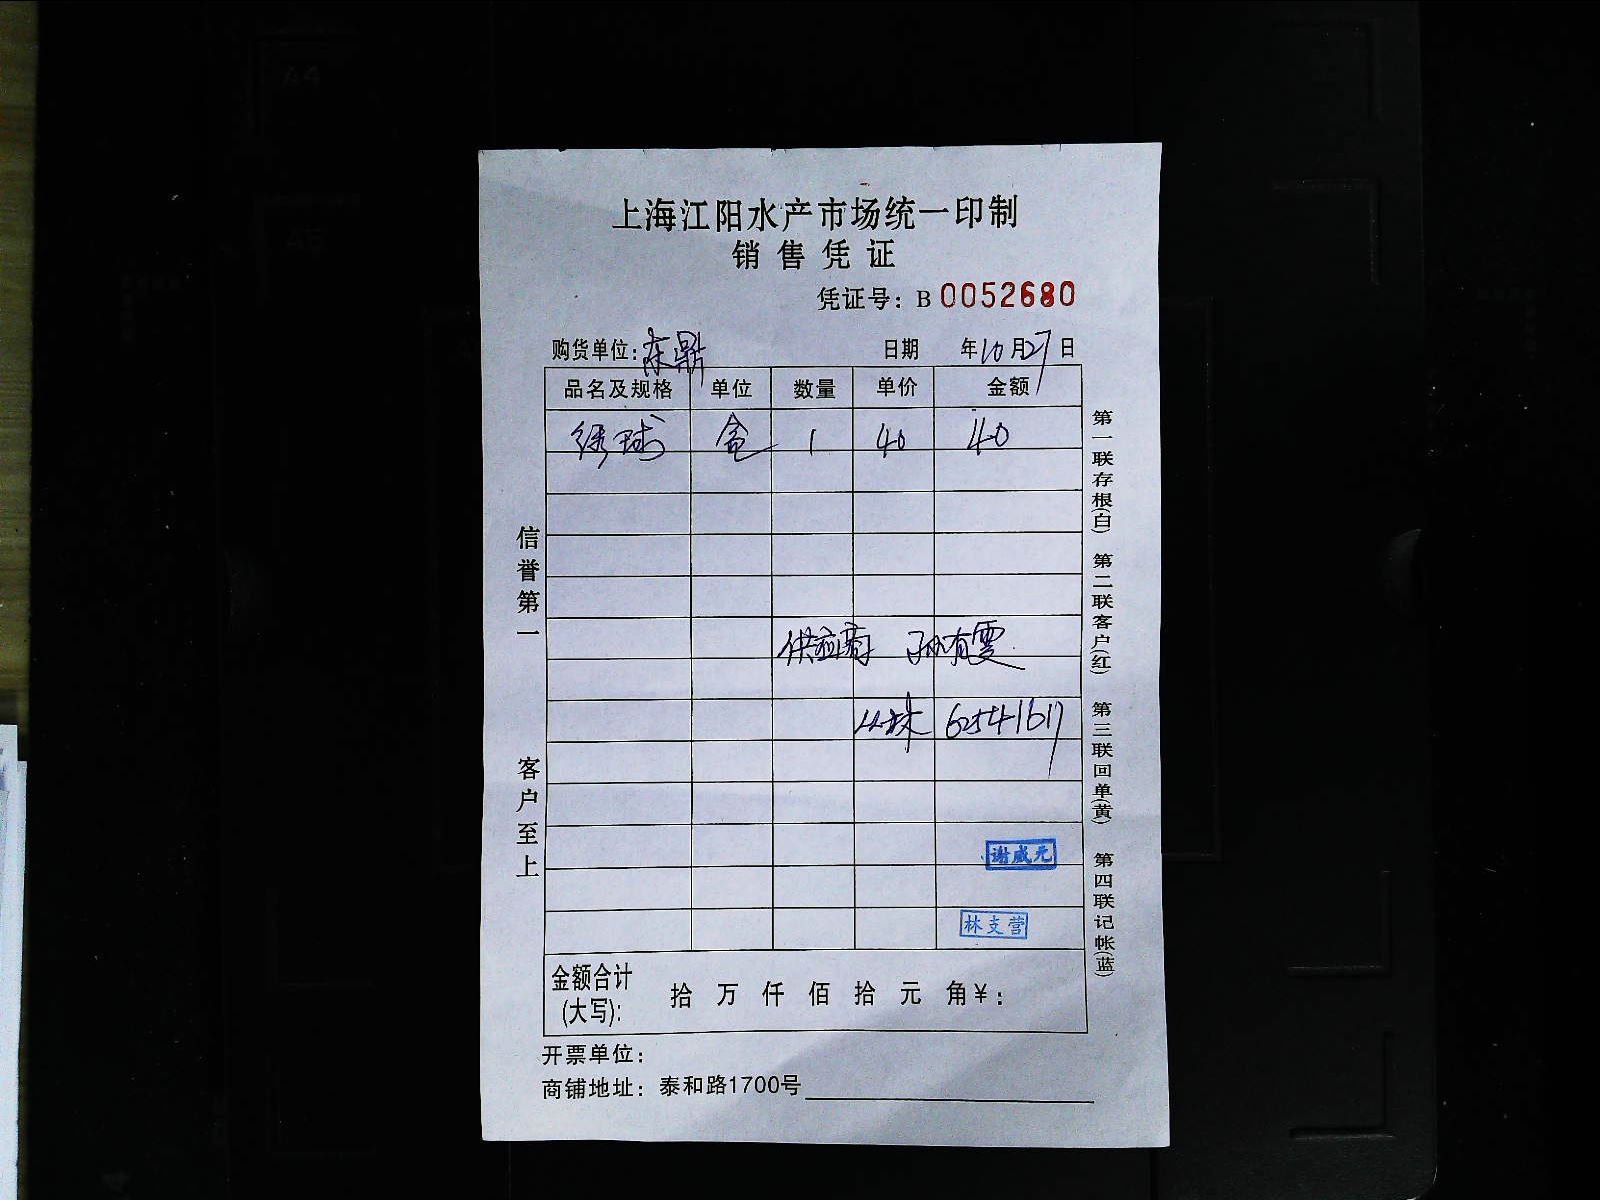 上海江阳水产市场统一印制
销售凭证
凭证号：B 0052680
购货单位：东鼎 日期 年10月27日
品名及规格 单位 数量 单价 金额
绣球 盒 1 40 40
供应商 孙有雯
62541617
谢咸元
林支营
金额合计(大写)： 拾 万 仟 佰 拾 元 角 ¥：
开票单位：
商铺地址：泰和路1700号
信誉第一
客户至上
第一联存根(白) 第二联客户(红) 第三联回单(黄) 第四联记帐(蓝)